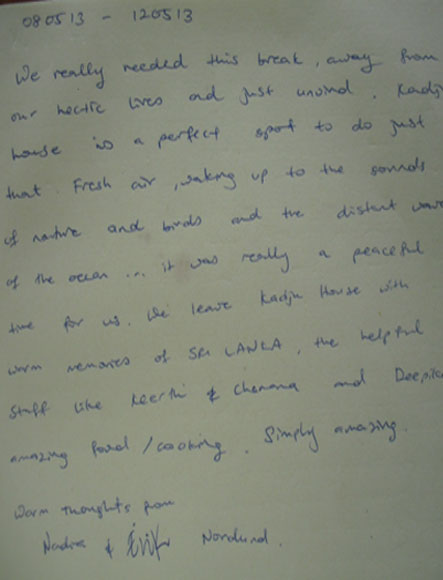 080513 - 120513
We really needed this break, away from
our hectic lives and just unwind. Kadju
house is a perfect spot to do just
that. Fresh air, waking up to the sounds
of nature and birds and the distant wave
of the ocean ... it was really a peaceful
time for us. We leave Kadju House with
warm memories of SRI LANKA, the helpful
staff like Keerthi & Chamana and
amazing food/cooking. Simply amazing.
Warm thoughts from
Nadia &